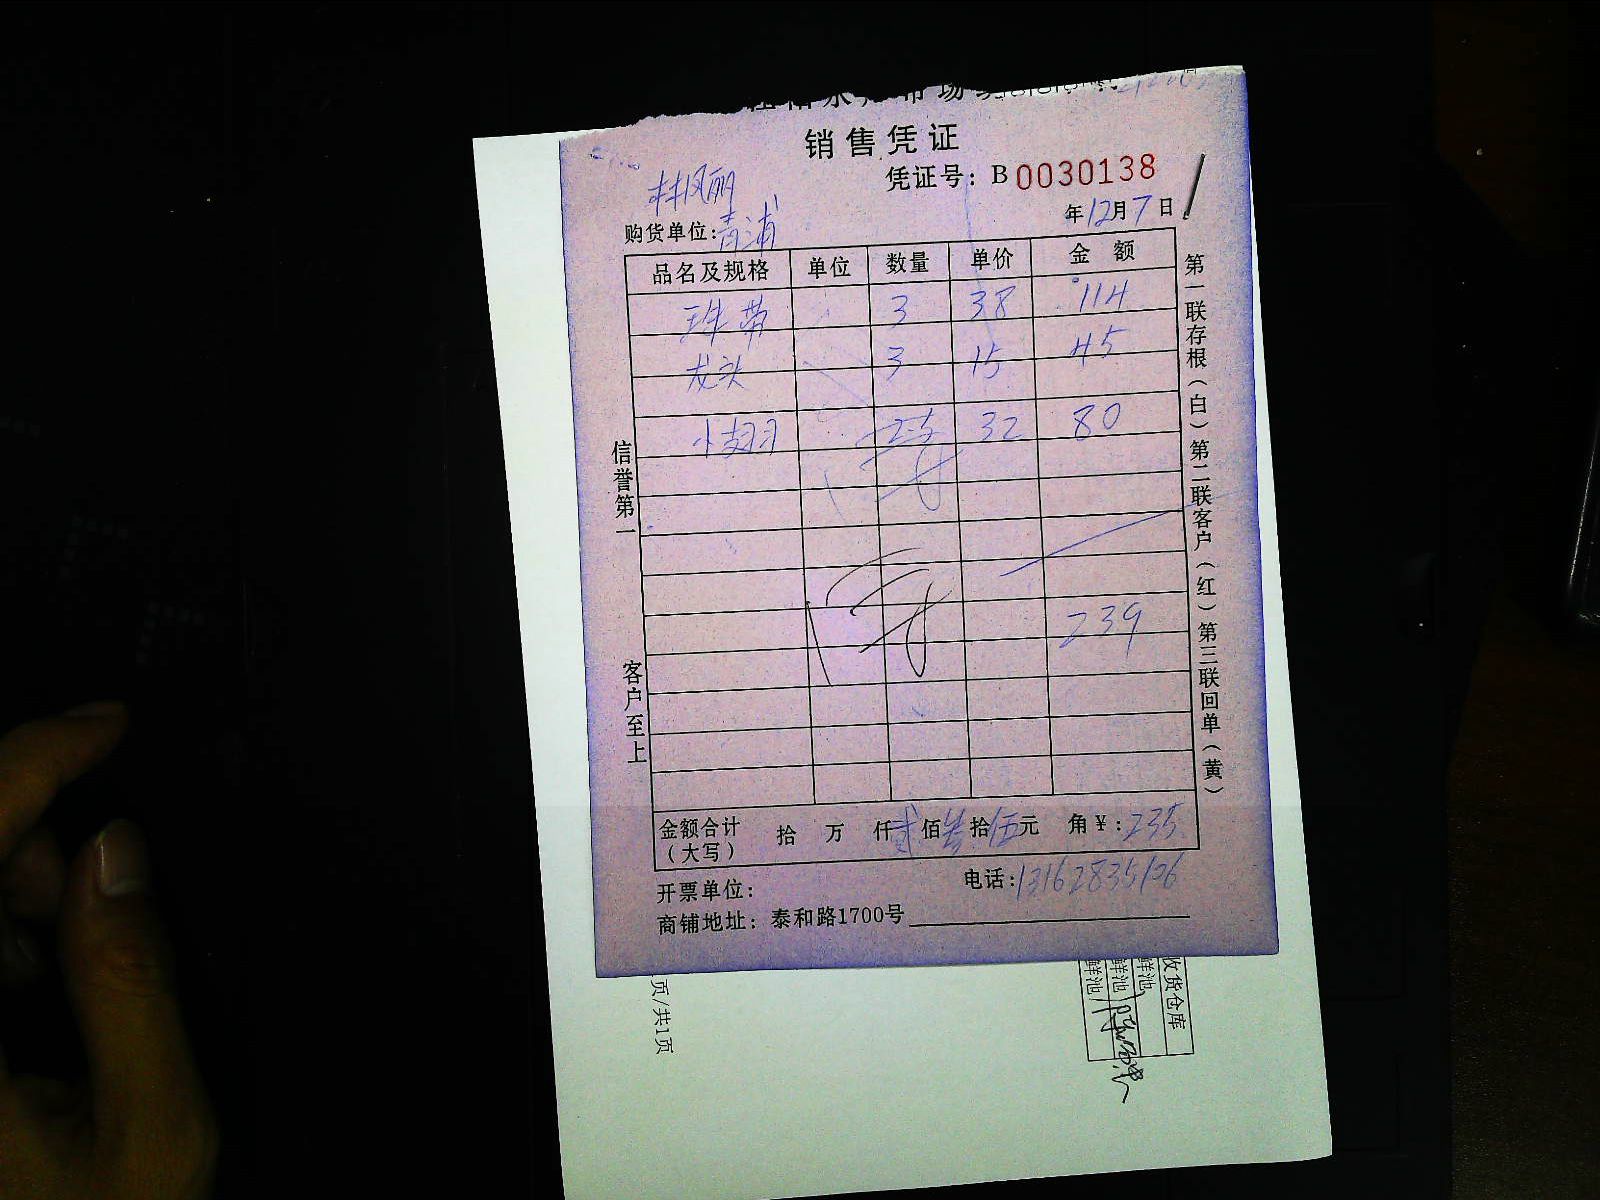 销售凭证
凭证号：B 0030138
林凤丽
年12月7日
购货单位：青浦
品名及规格 单位 数量 单价 金 额
珠带 3 38 114
龙头 3 15 45
小翅 2.5 32 80
239
金额合计（大写） 拾 万 仟贰佰叁拾伍元 角￥：235
开票单位： 电话：13162835126
商铺地址：泰和路1700号
信誉第一
客户至上
第一联存根（白）第二联客户（红）第三联回单（黄）
页/共1页
收货仓库
鲜池
鲜池
鲜池